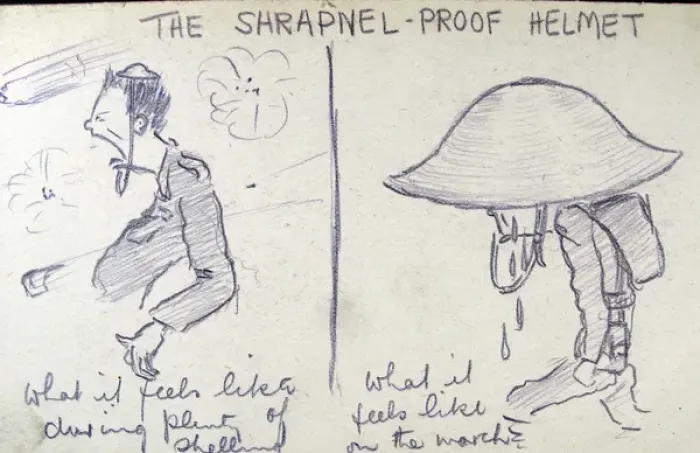 THE SHRAPNEL-PROOF HELMET
What it feels like
during plenty of
shelling
What it
feels like
on the march